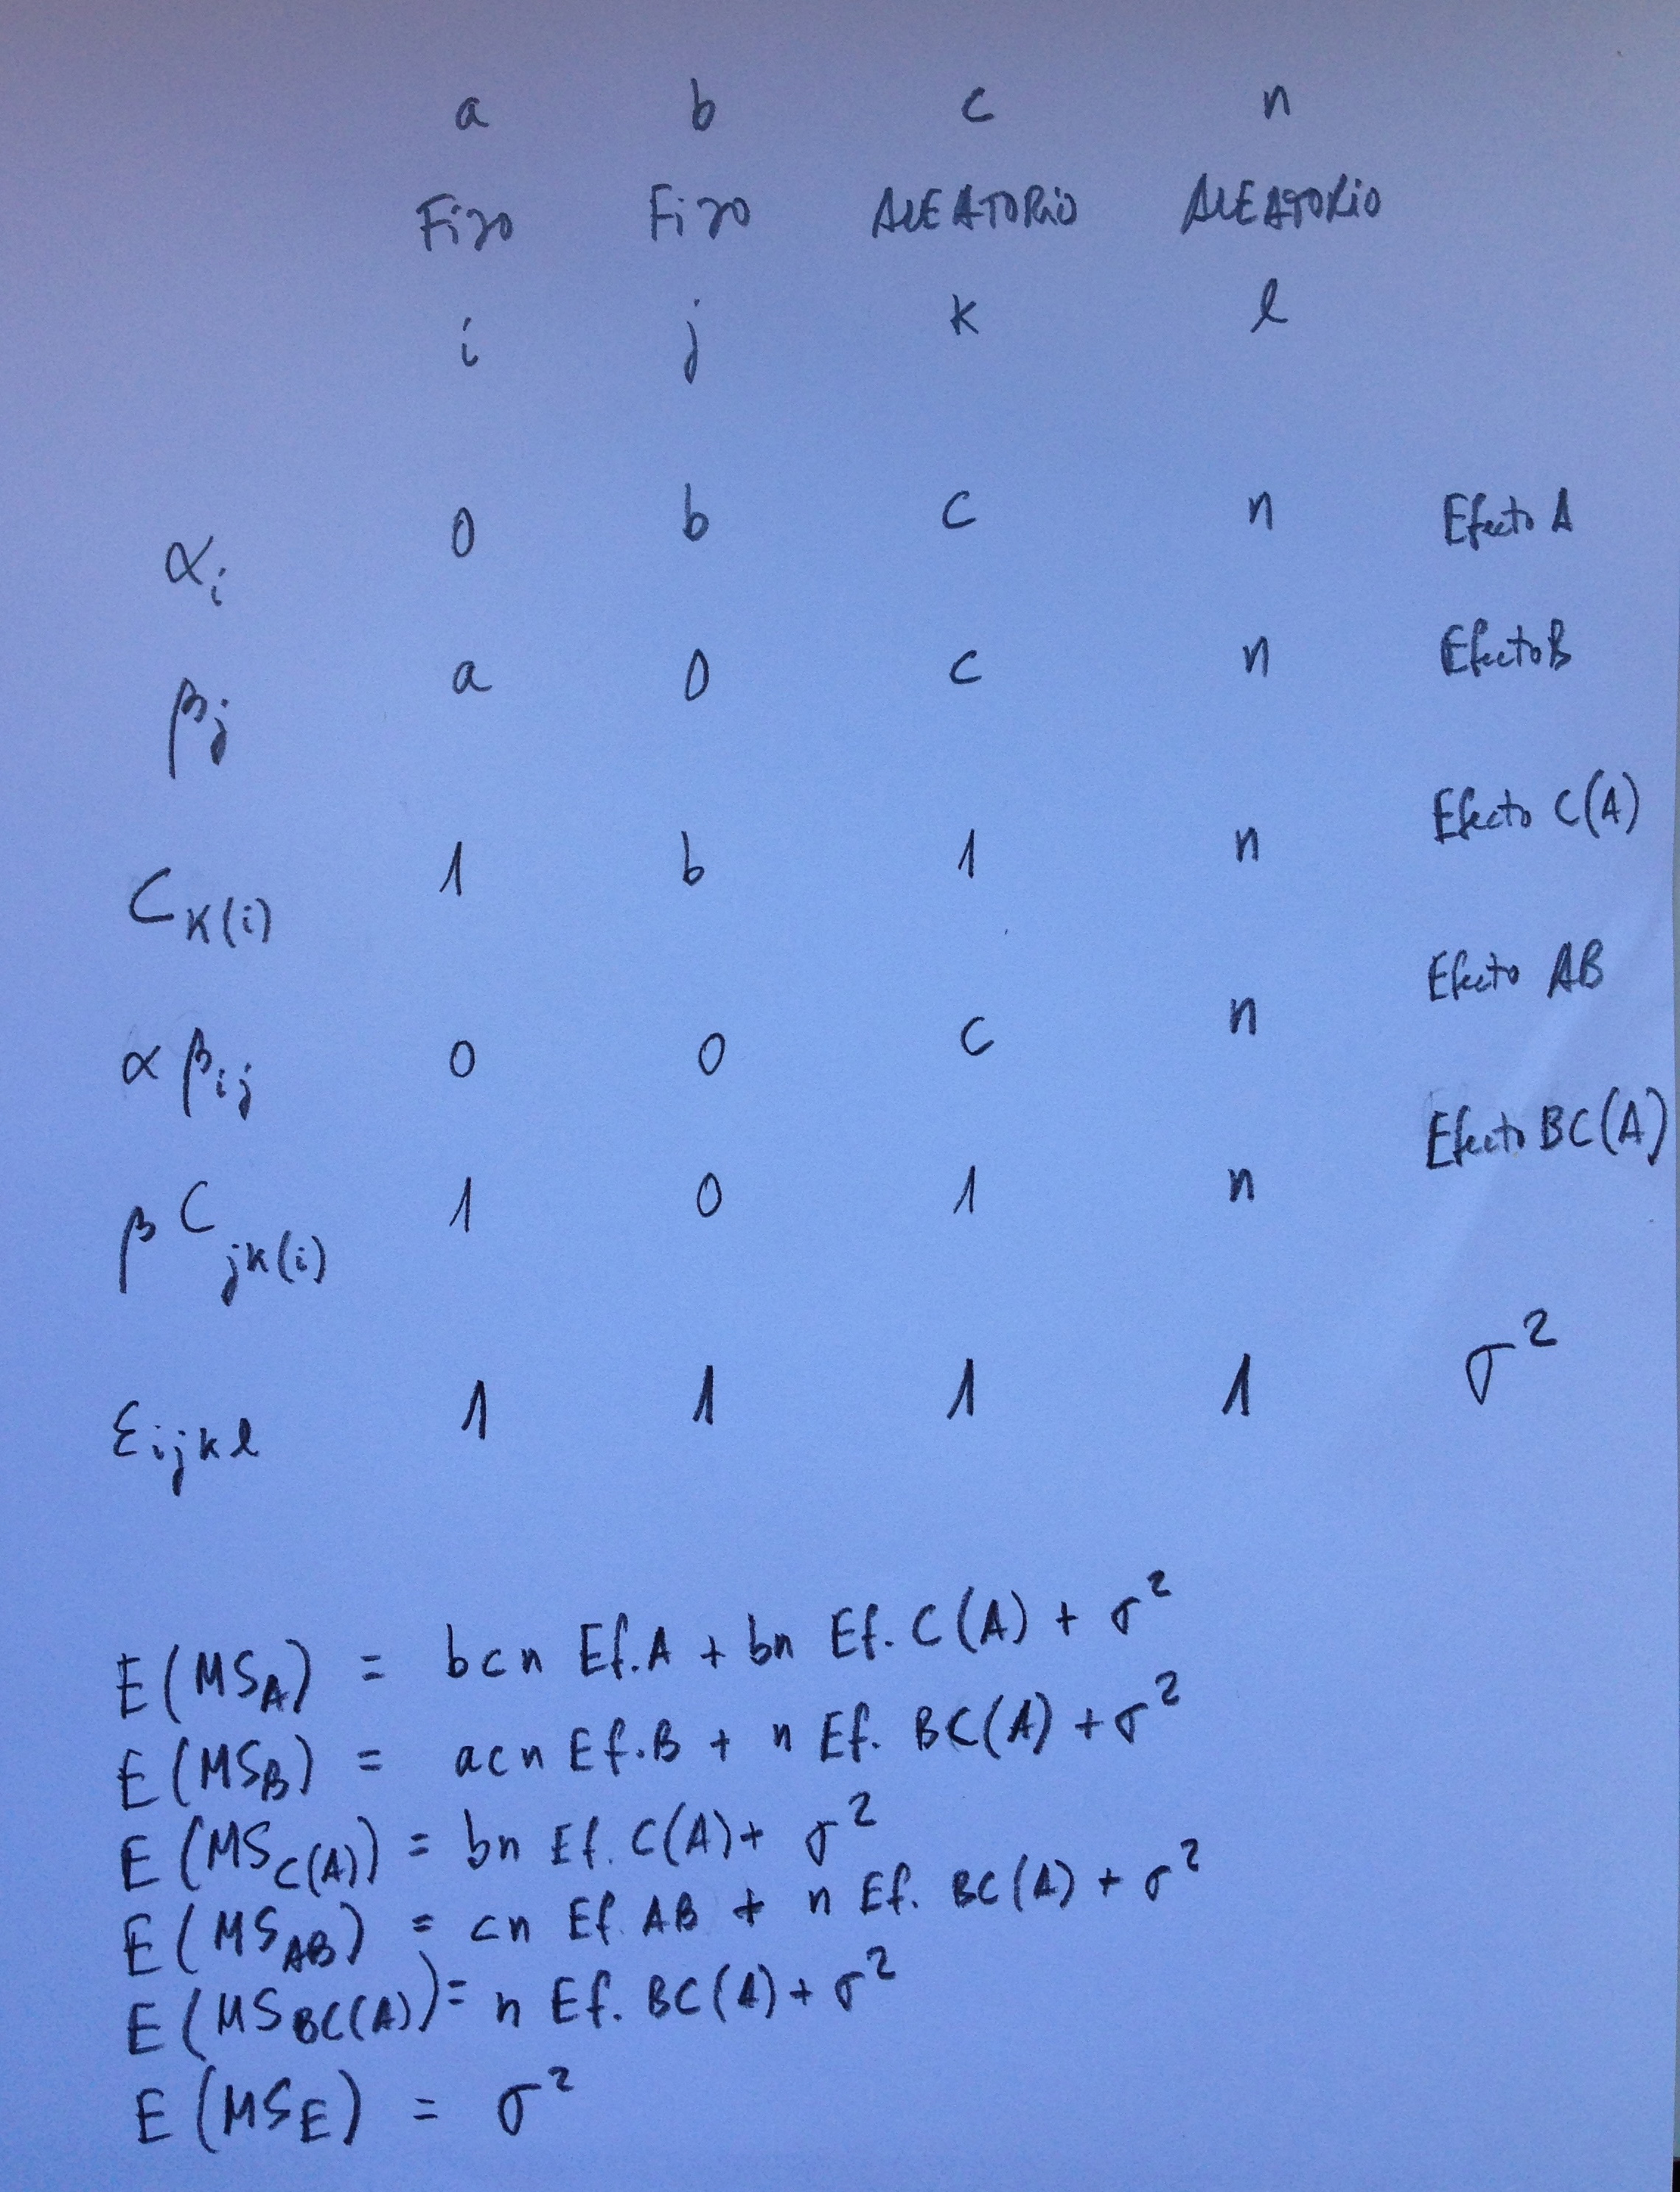 a b c n
Fijo Fijo ALEATORIO ALEATORIO
i j k l
αi 0 b c n Efecto A
βj a 0 c n Efecto B
CK(i) 1 b 1 n Efecto C(A)
αβij 0 0 c n Efecto AB
βCjk(i) 1 0 1 n Efecto BC(A)
εijkl 1 1 1 1 σ²
E(MSA) = bcn Ef.A + bn Ef. C(A) + σ²
E(MSB) = acn Ef.B + n Ef. BC(A) + σ²
E(MSC(A)) = bn Ef. C(A) + σ²
E(MSAB) = cn Ef. AB + n Ef. BC(A) + σ²
E(MSBC(A)) = n Ef. BC(A) + σ²
E(MSE) = σ²